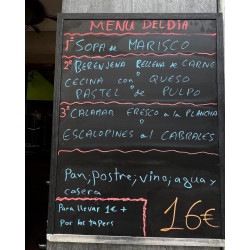 MENU DEL DIA
1º SOPA de MARISCO
2º BERENJENA RELLENA de CARNE
o
CECINA con QUESO
o
PASTEL de PULPO
3º CALAMAR FRESCO a la PLANCHA
o
ESCALOPINES al CABRALES
Pan, postre, vino, agua y
casera
Para llevar 1€ +
Por los tapers
16€